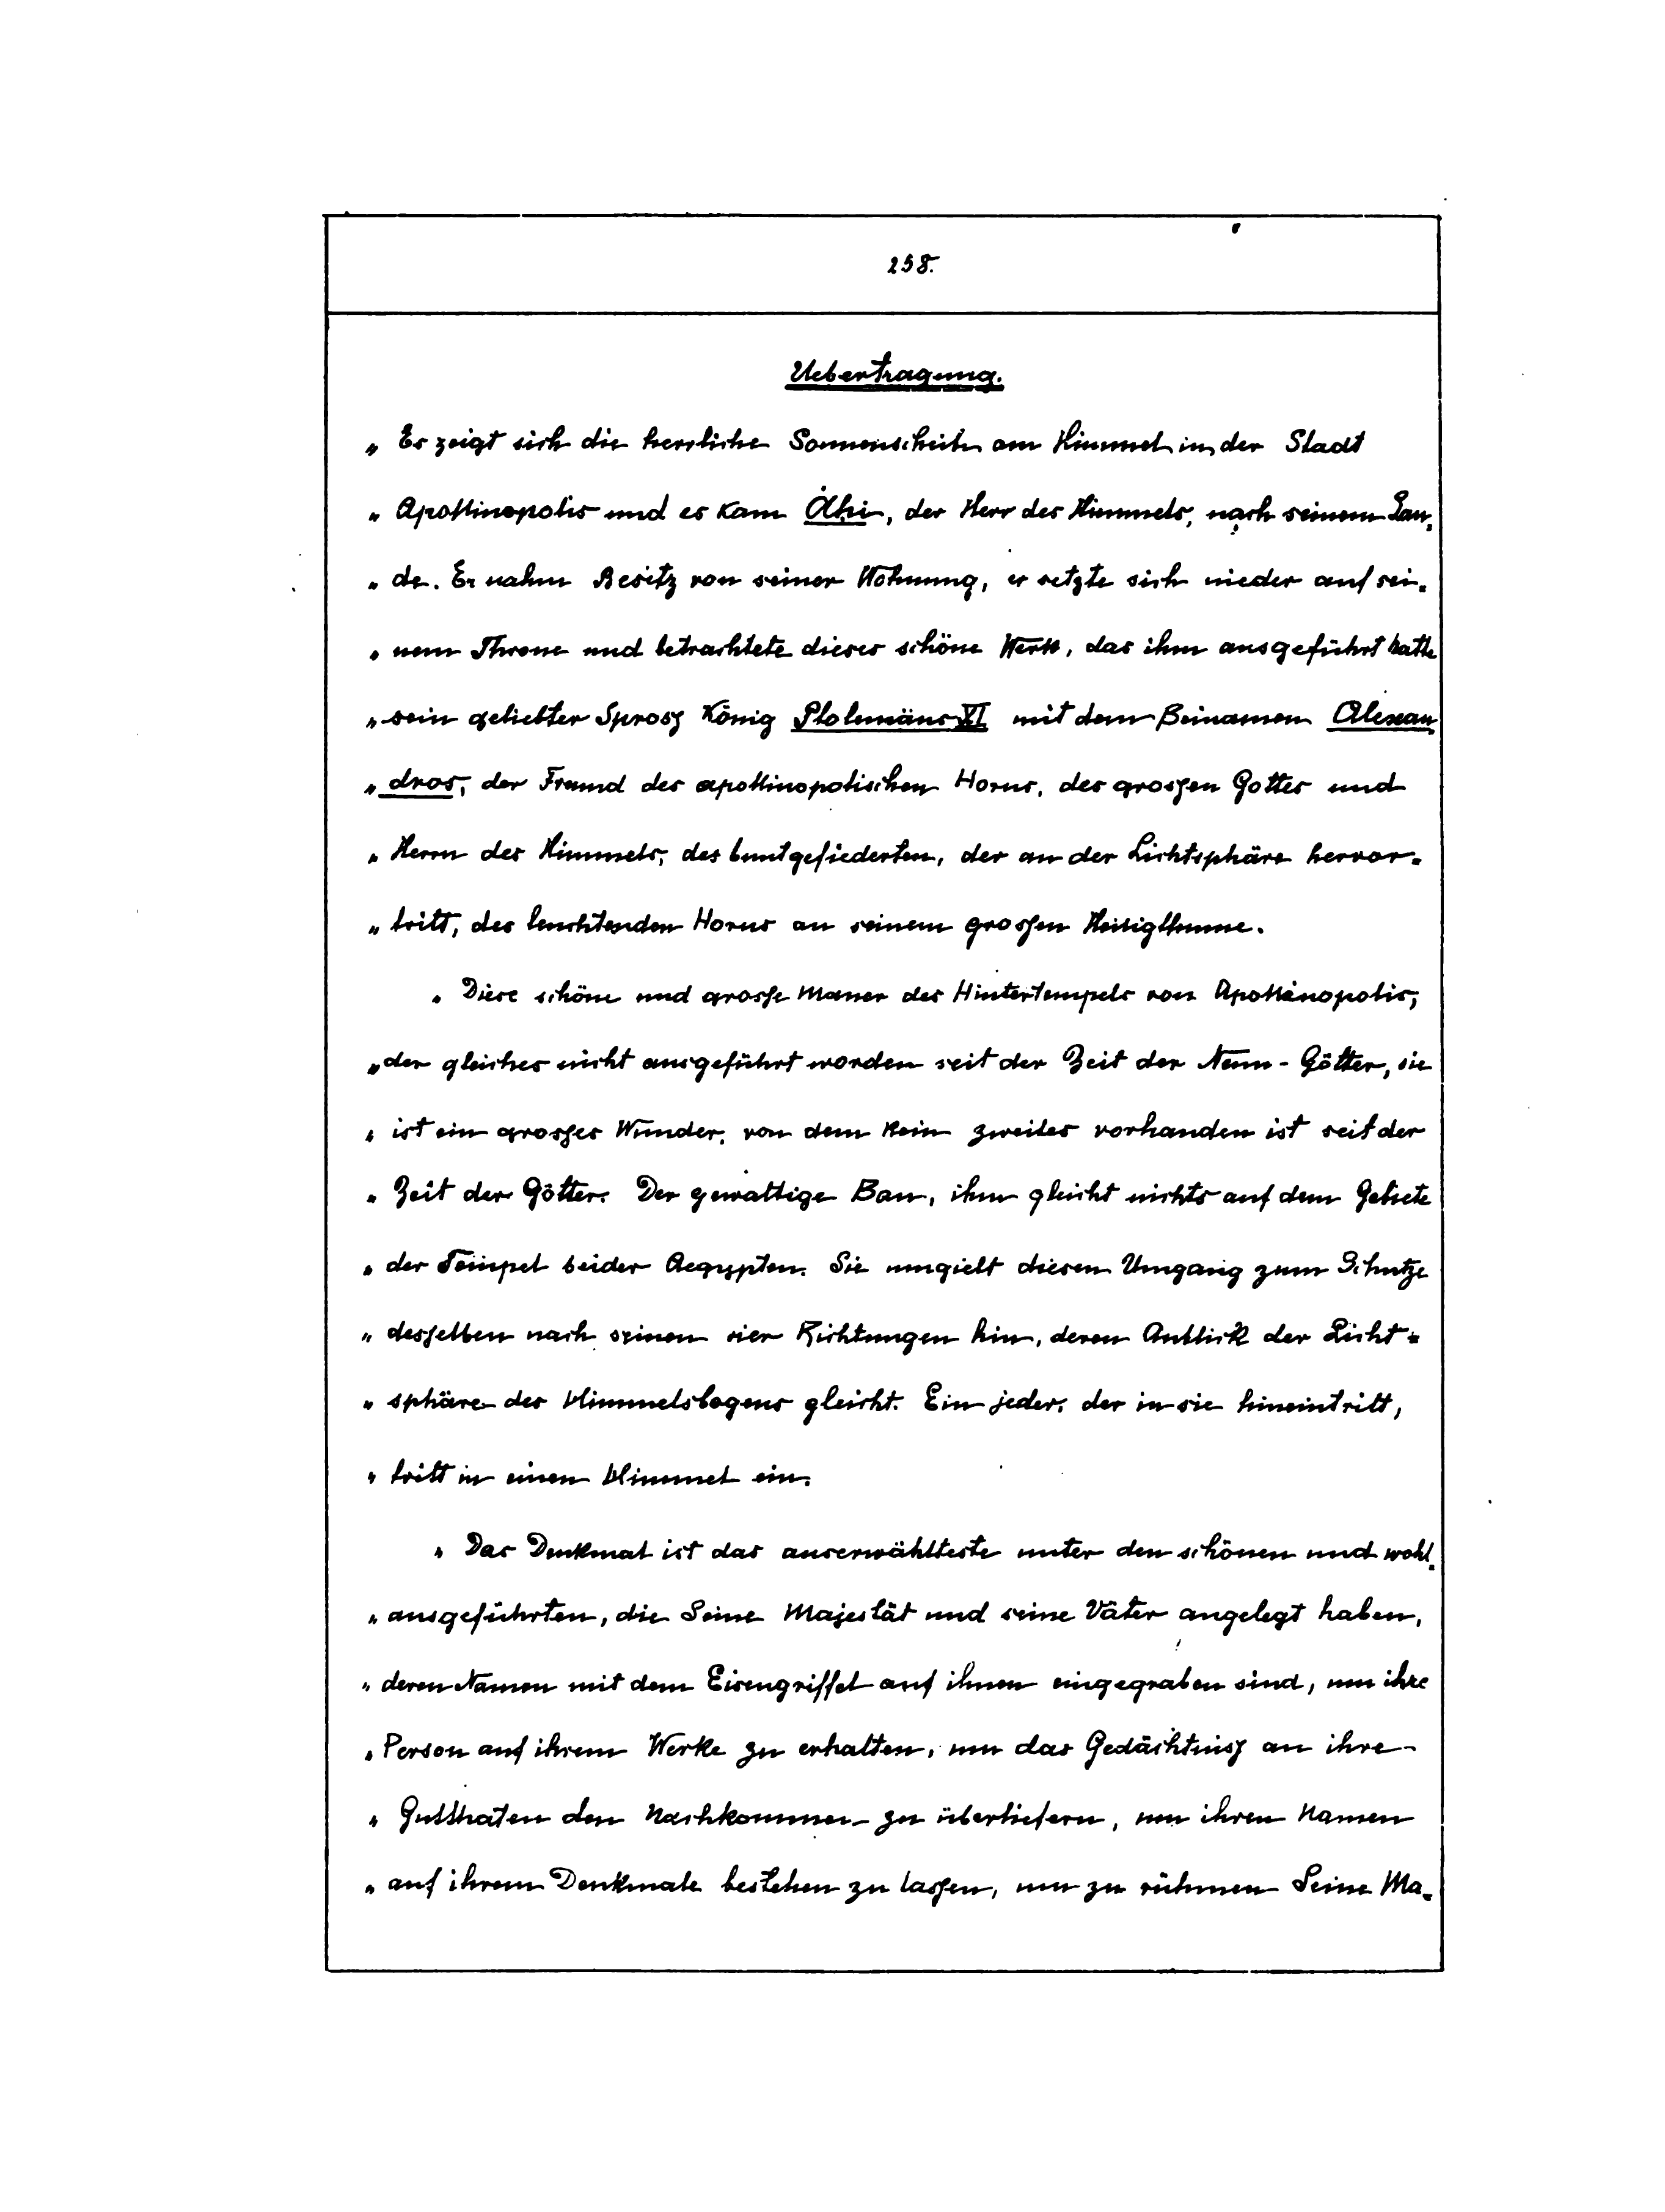 258.
Uebertragung.
„ Es zeigt sich die herrliche Sonnenscheibe am Himmel in der Stadt
„ Apollinopolis und es kam Ȧḥi, der Herr des Himmels, nach seinem Lan-
„ de. Er nahm Besitz von seiner Wohnung, er setzte sich nieder auf sei-
„ nem Throne und betrachtete dieses schöne Werk, das ihm ausgeführt hatte
„ sein geliebter Sproß König Ptolemäus XI mit dem Beinamen Alexan-
„ dros, der Freund des apollinopolischen Horus, des großen Gottes und
„ Herrn des Himmels, des buntgefiederten, der an der Lichtsphäre hervor-
„ tritt, des leuchtenden Horus an seinem großen Heiligthume.
„ Diese schöne und große Mauer des Hintertempels von Apollinopolis,
„ der gleiches nicht ausgeführt worden seit der Zeit der Neun-Götter, sie
„ ist ein großes Wunder, von dem kein zweites vorhanden ist seit der
„ Zeit der Götter. Der gewaltige Bau, ihm gleicht nichts auf dem Gebiete
„ der Tempel beider Aegypten. Sie umgiebt diesen Umgang zum Schutze
„ desselben nach seinen vier Richtungen hin, deren Anblick der Licht-
„ sphäre des Himmelsbogens gleicht. Ein jeder, der in sie hineintritt,
„ tritt in einen Himmel ein.
„ Das Denkmal ist das auserwählteste unter den schönen und wohl-
„ ausgeführten, die Seine Majestät und seine Väter angelegt haben,
„ deren Namen mit dem Eisengriffel auf ihnen eingegraben sind, um ihre
„ Person auf ihrem Werke zu erhalten, um das Gedächtniß an ihre
„ Gutthaten den Nachkommen zu überliefern, um ihren Namen
„ auf ihrem Denkmale bestehen zu laßen, um zu rühmen Seine Ma-